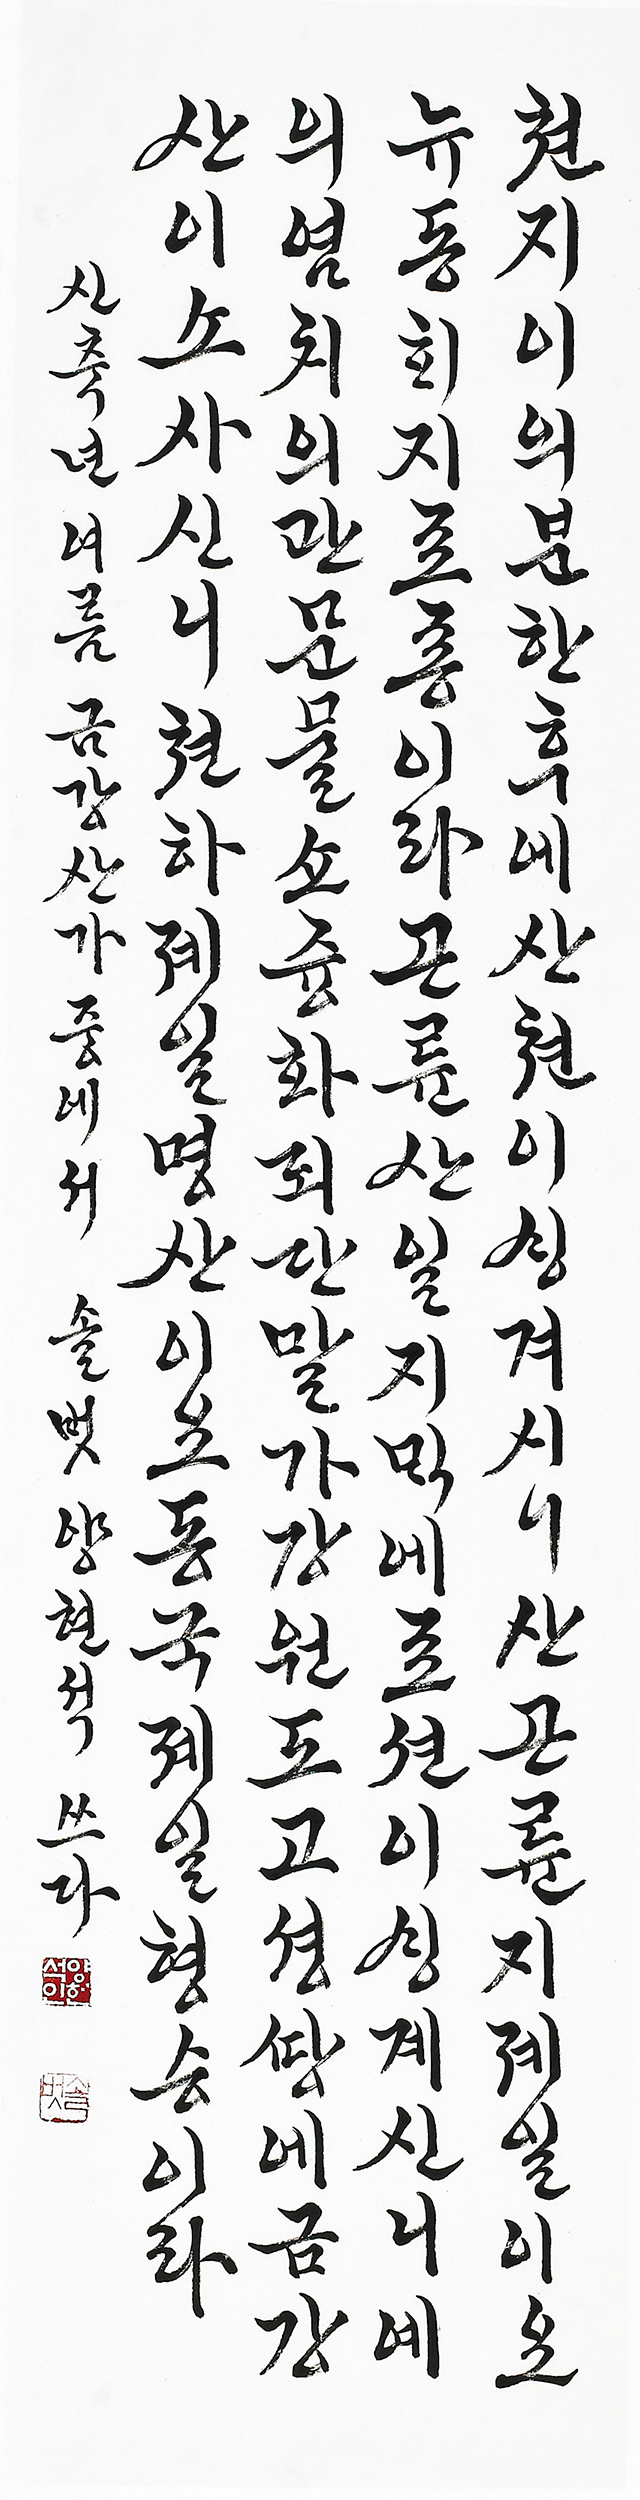 쳔지이의분한후에산쳔이싱겨시니산곤륜지졔일이오
뉴동희지죠죵이라곤륜산일지막에죠션이싱계신니녜
의염치의관문물쇼즁화되단말가강원도고셩땅에금강
산이소사신니쳔하졔일명산이요동국졔일형승이라
신축년 여름 금강산가 중에서 솔벗 양현석 쓰다
양현석인
솔벗